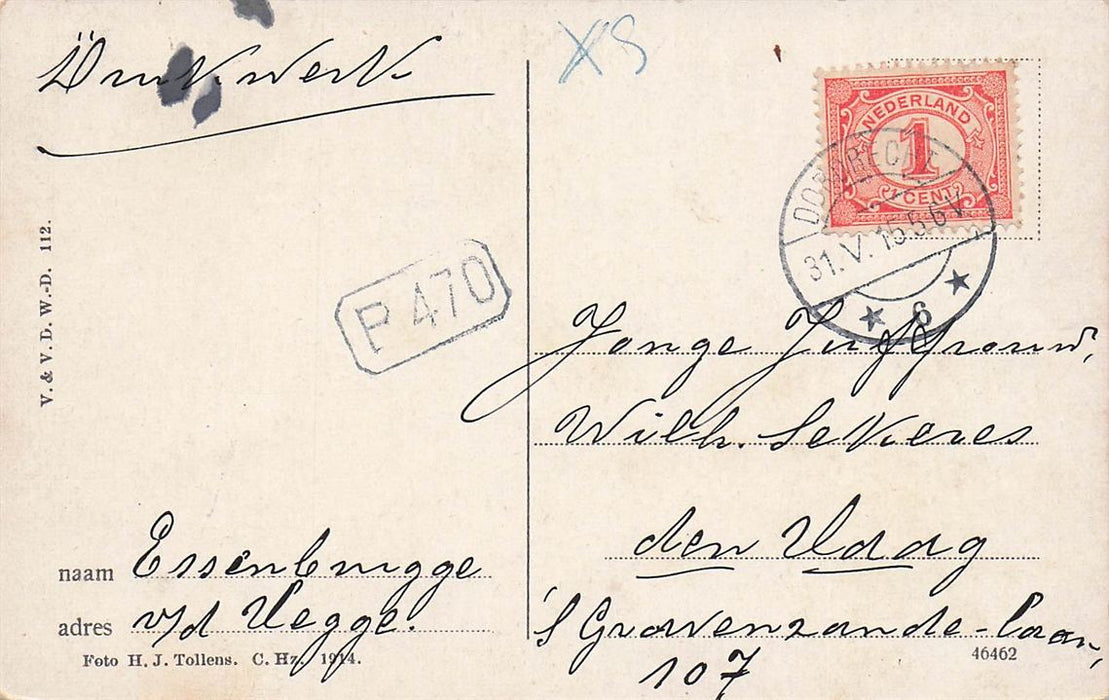 Drukwerk
XS
NEDERLAND
1
CENT
DORDRECHT
31.V.15 5-6V
6
V. & V. D. W.-D. 112.
P 470
Jonge Juffrouw,
Wilh. Sekeres
den Haag
's Gravenzande-laan,
107
naam Essenbrugge
adres v/d Vegge.
Foto H. J. Tollens. C. Hz. 1914.
46462